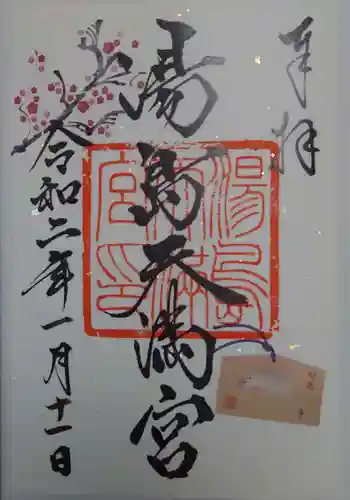 奉拝
湯島天満宮
令和二年一月十一日